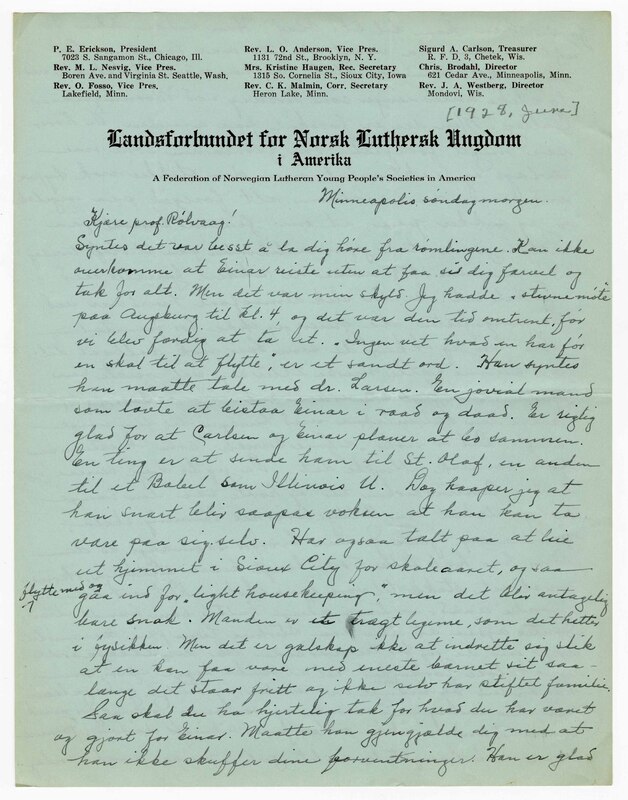 P. E. Erickson, President
7023 S. Sangamon St., Chicago, Ill.
Rev. M. L. Nesvig, Vice Pres.
Boren Ave. and Virginia St. Seattle, Wash.
Rev. O. Fosso, Vice Pres.
Lakefield, Minn.
Rev. L. O. Anderson, Vice Pres.
1131 72nd St., Brooklyn, N. Y.
Mrs. Kristine Haugen, Rec. Secretary
1315 So. Cornelia St., Sioux City, Iowa
Rev. C. K. Malmin, Corr. Secretary
Heron Lake, Minn.
Sigurd A. Carlson, Treasurer
R. F. D, 3, Chetek, Wis.
Chris. Brodahl, Director
621 Cedar Ave., Minneapolis, Minn.
Rev. J. A. Westberg, Director
Mondovi, Wis.
[1928, June]
Landsforbundet for Norsk Luthersk Ungdom
i Amerika
A Federation of Norwegian Lutheran Young People's Societies in America
Minneapolis søndag morgen.
Kjære prof. Rølvaag!
Syntes det var besst å la dig høre fra rømlingene. Kan ikke
overkomme at Einar reiste uten at faa si dig farvel og
tak for alt. Men det var min skyld. Jeg hadde stevnemøte
paa Augsburg til kl. 4 og det var den tid omtrent, før
vi blev færdig at ta ut. "Ingen vet hvad en har før
en skal til at flytte", er et sandt ord. Han syntes
han maatte tale med dr. Larsen. En jovial mand
som lovte at bistaa Einar i raad og daad. Er rigtig
glad for at Carlsen og Einar planer at bo sammen.
En ting er at sende ham til St. Olaf, en anden
til et Babel som Illinois U. Dog haaper jeg at
han snart blir saapas voksen at han kan ta
vare paa sig selv. Har ogsaa talt paa at leie
ut hjemmet i Sioux City for skoleaaret, ogsaa
flytte med og
gaa ind for "light housekeeping", men det blir antagelig
bare snak. Manden er et trægt legeme, som det heter
i fysikken. Men det er galskap ikke at indrette sig slik
at en kan faa være med eneste barnet sit saa-
længe det staar frit og ikke selv har stiftet familie.
Saa skal du ha hjertelig tak for hvad du har været
og gjort for Einar. Maatte han gjengjælde dig med at
han ikke skuffer dine forventninger. Han er glad